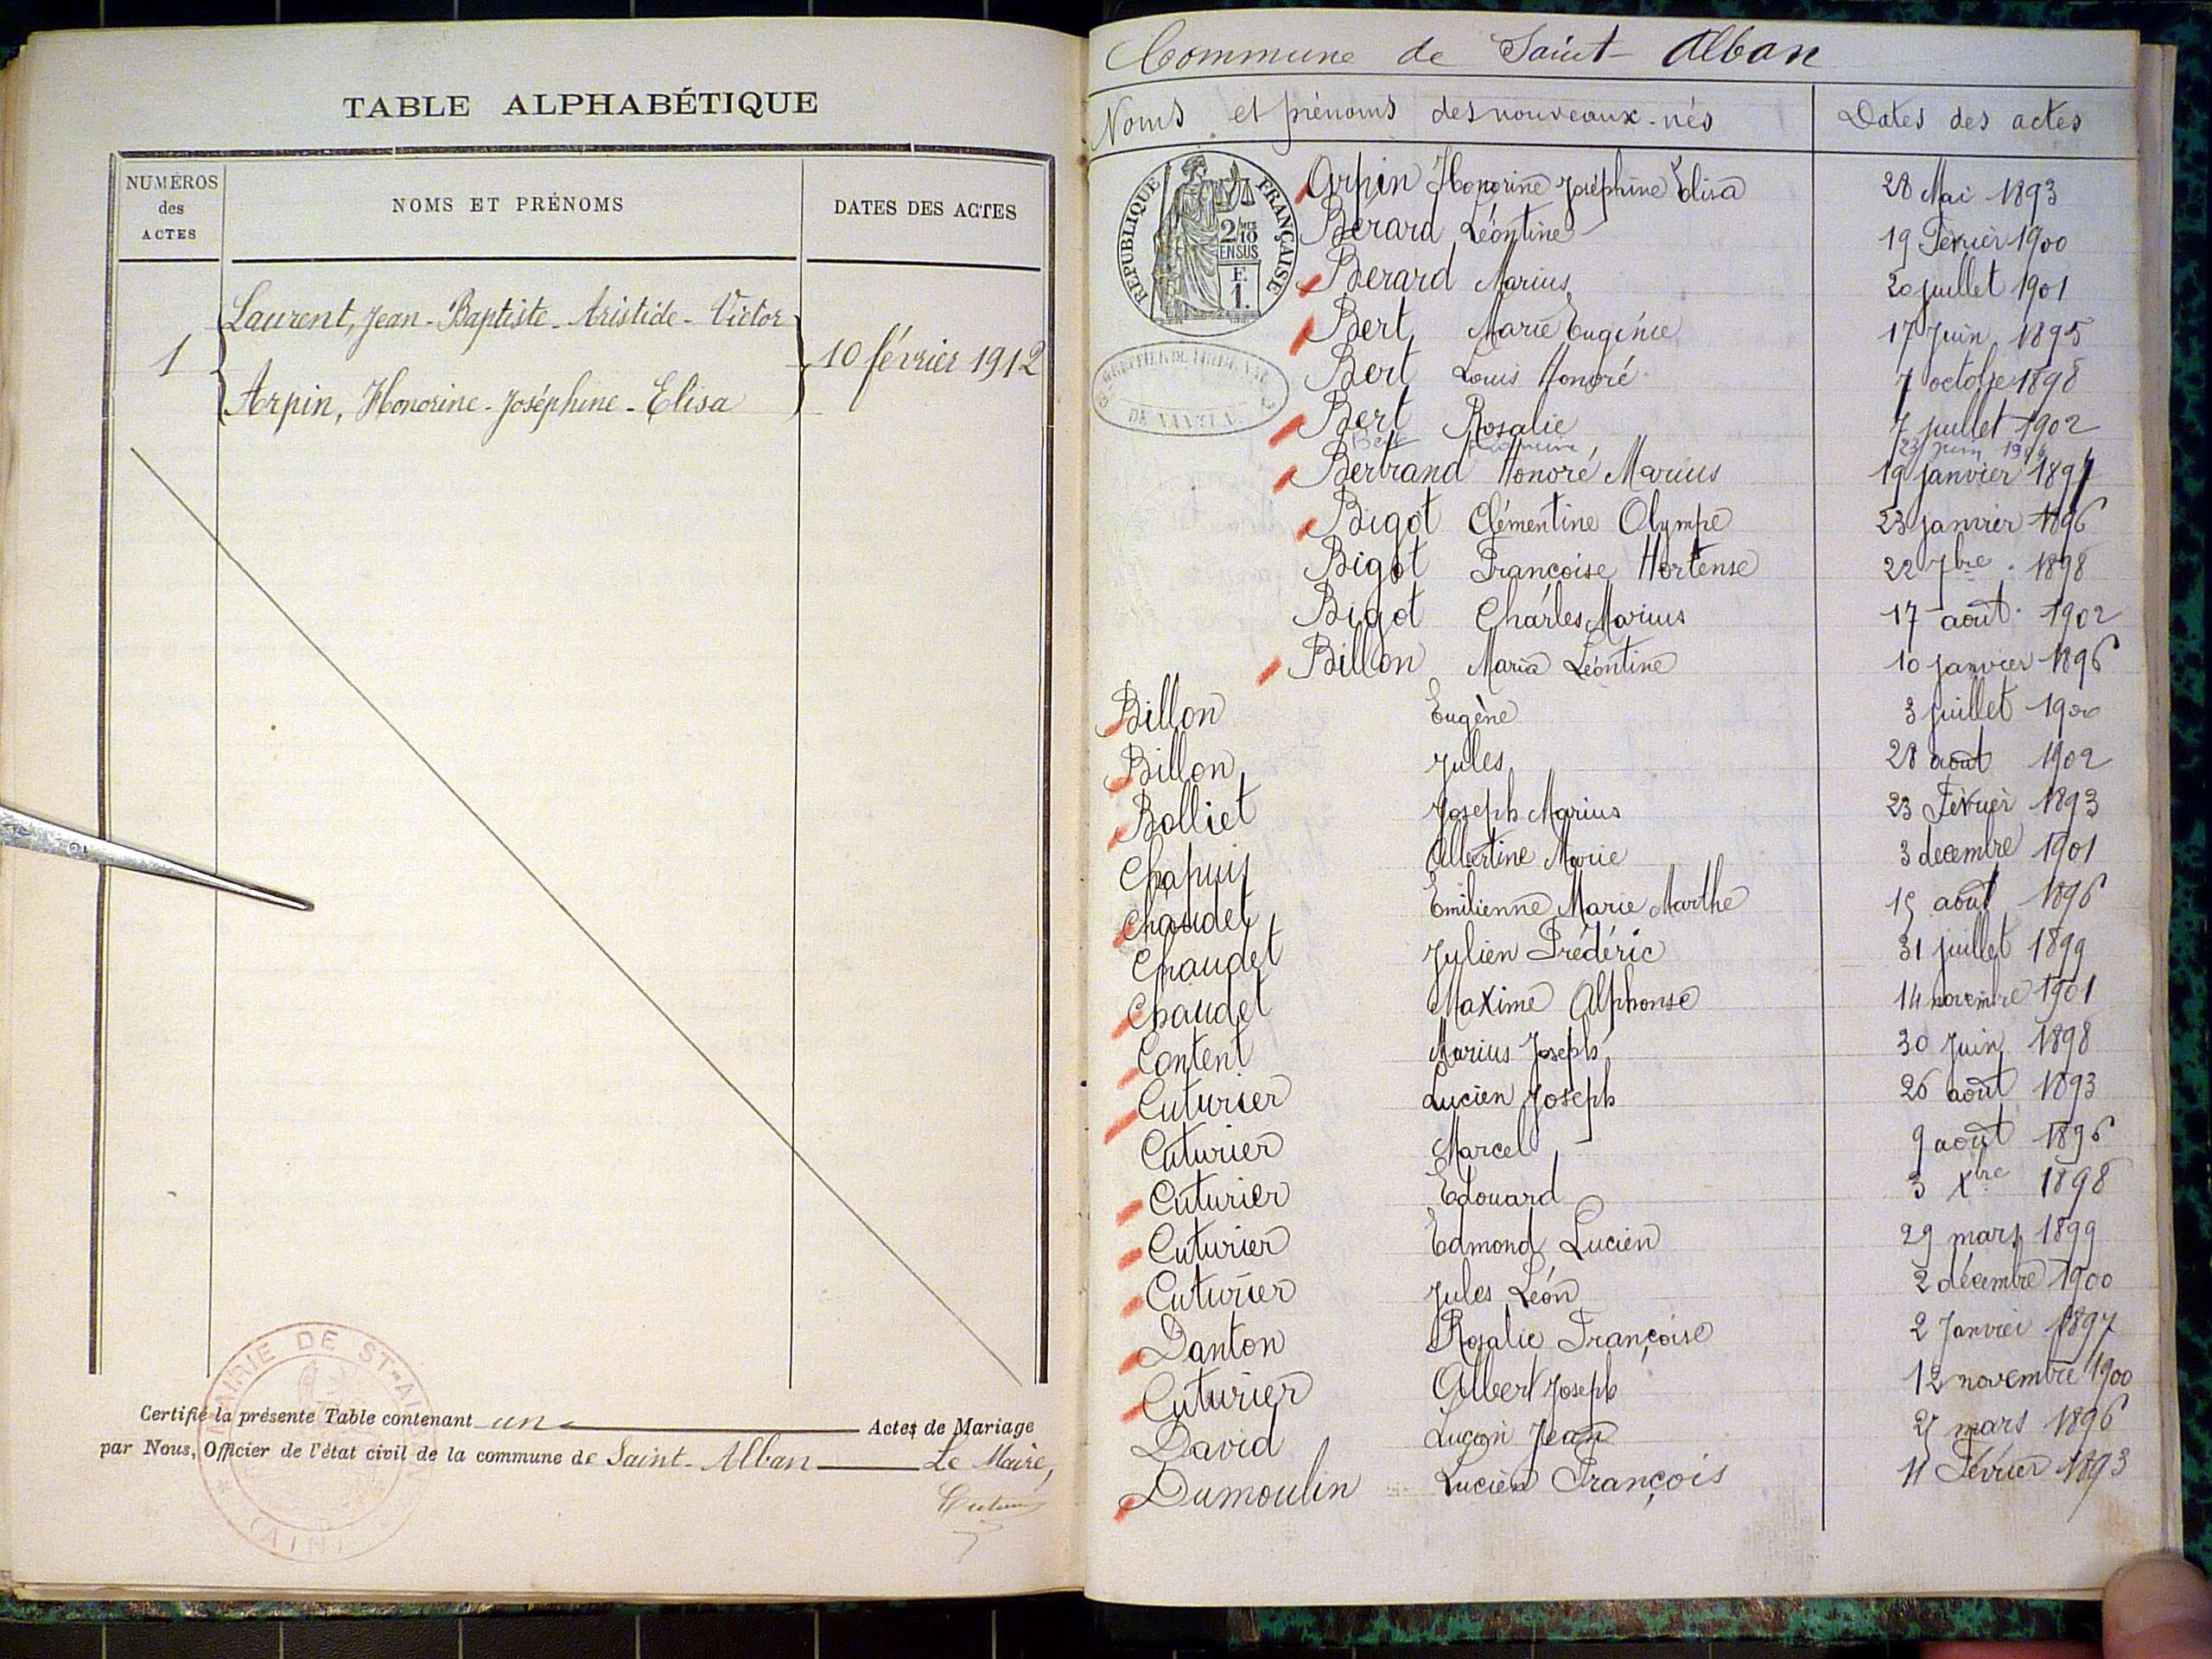 TABLE ALPHABÉTIQUE
NUMÉROS
des
ACTES
NOMS ET PRÉNOMS
DATES DES ACTES
Laurent, Jean-Baptiste-Aristide-Victor
1
10 février 1912
Arpin, Honorine-Joséphine-Elisa
MAIRIE DE ST-ALBAN
(AIN)
Certifié la présente Table contenant un Actes de Mariage
par Nous, Officier de l'état civil de la commune de Saint-Alban Le Maire,
Commune de Saint-Alban
Noms et prénoms des nouveaux-nés Dates des actes
RÉPUBLIQUE FRANÇAISE
2/10 EN SUS
F.
1.
Arpin Honorine Joséphine Elisa 28 Mai 1893
Bérard Léontine 19 Février 1900
Berard Marius 20 juillet 1901
Bert Marie Eugénie 17 Juin 1895
Bert Louis Honoré 7 octobre 1898
Bert Rosalie 7 juillet 1902
Bert 23 Juin
Bertrand Honoré Marius 19 janvier 1897
Bigot Clémentine Olympe 23 janvier 1896
Bigot Françoise Hortense 22 7bre 1898
Bigot Charles Marius 17 août 1902
Billon Maria Léontine 10 janvier 1896
Billon Eugène 3 juillet 1900
Billon Jules 28 août 1902
Bolliet Joseph Marius 23 Février 1893
Chapuis Albertine Marie 3 decembre 1901
Chaudet Emilienne Marie Marthe 15 août 1896
Chaudet Julien Frédéric 31 juillet 1899
Chaudet Maxime Alphonse 14 novembre 1901
Content Marius Joseph 30 Juin 1898
Cuturier Lucien Joseph 26 août 1893
Cuturier Marcel 9 août 1896
Cuturier Edouard 3 Xbre 1898
Cuturier Edmond Lucien 29 mars 1899
Cuturier Jules Léon 2 décembre 1900
Danton Rosalie Françoise 2 Janvier 1897
Cuturier Albert Joseph 12 novembre 1900
David Lucien Jean mars 1896
Dumoulin Lucien François 11 Février 1893